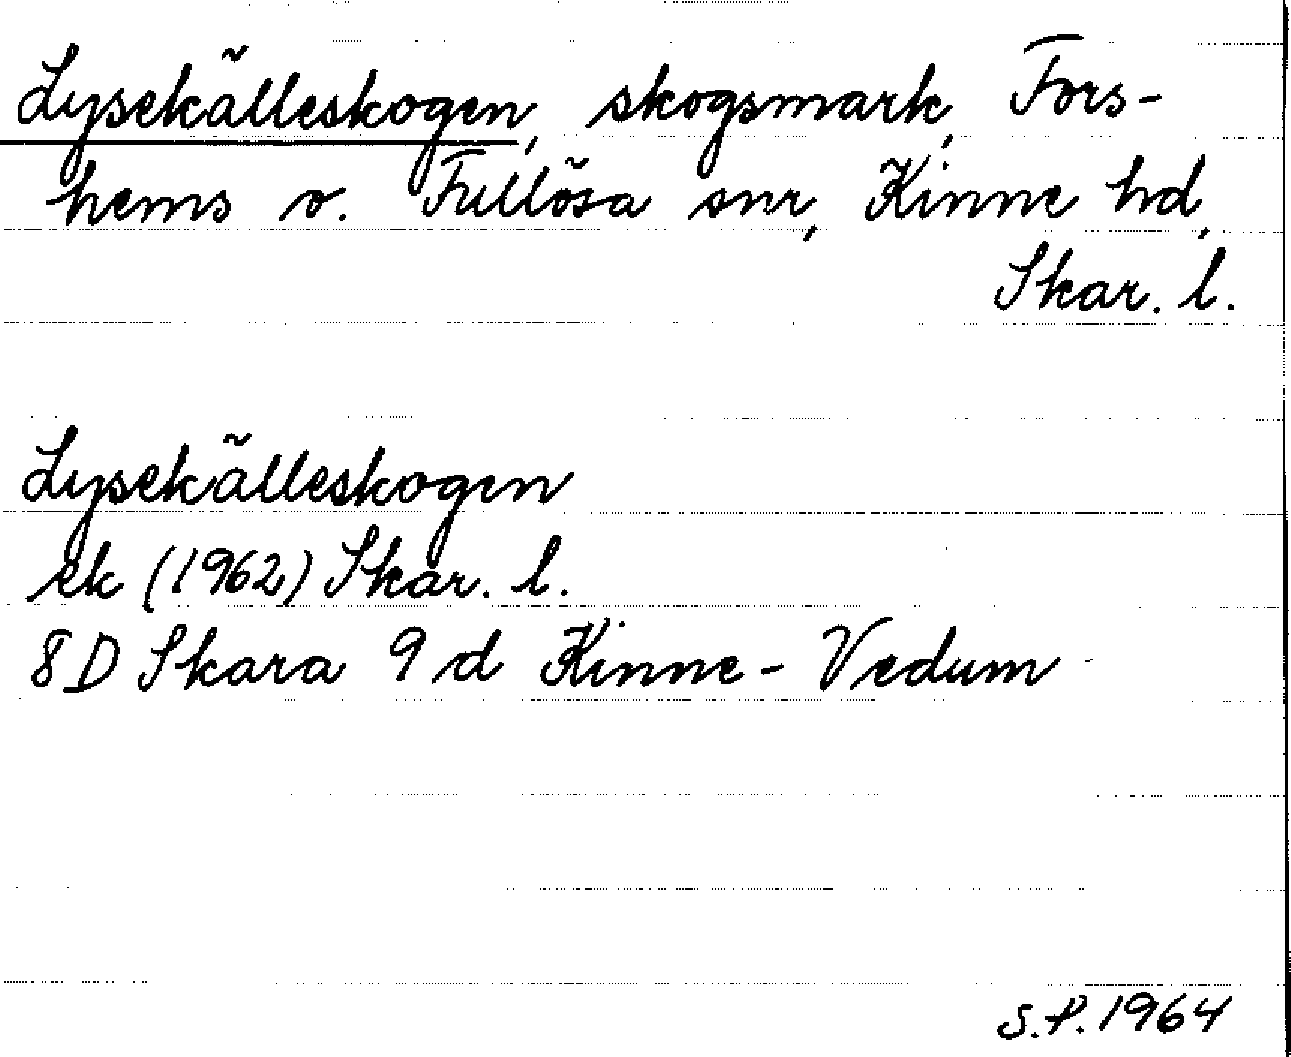 Lysekälleskogen, skogsmark, Fors-
hems o. Fullösa snr, Kinne hd,
Skar. l.
Lysekälleskogen
ek (1962) Skar. l.
8D Skara 9d Kinne-Vedum
S.P. 1964